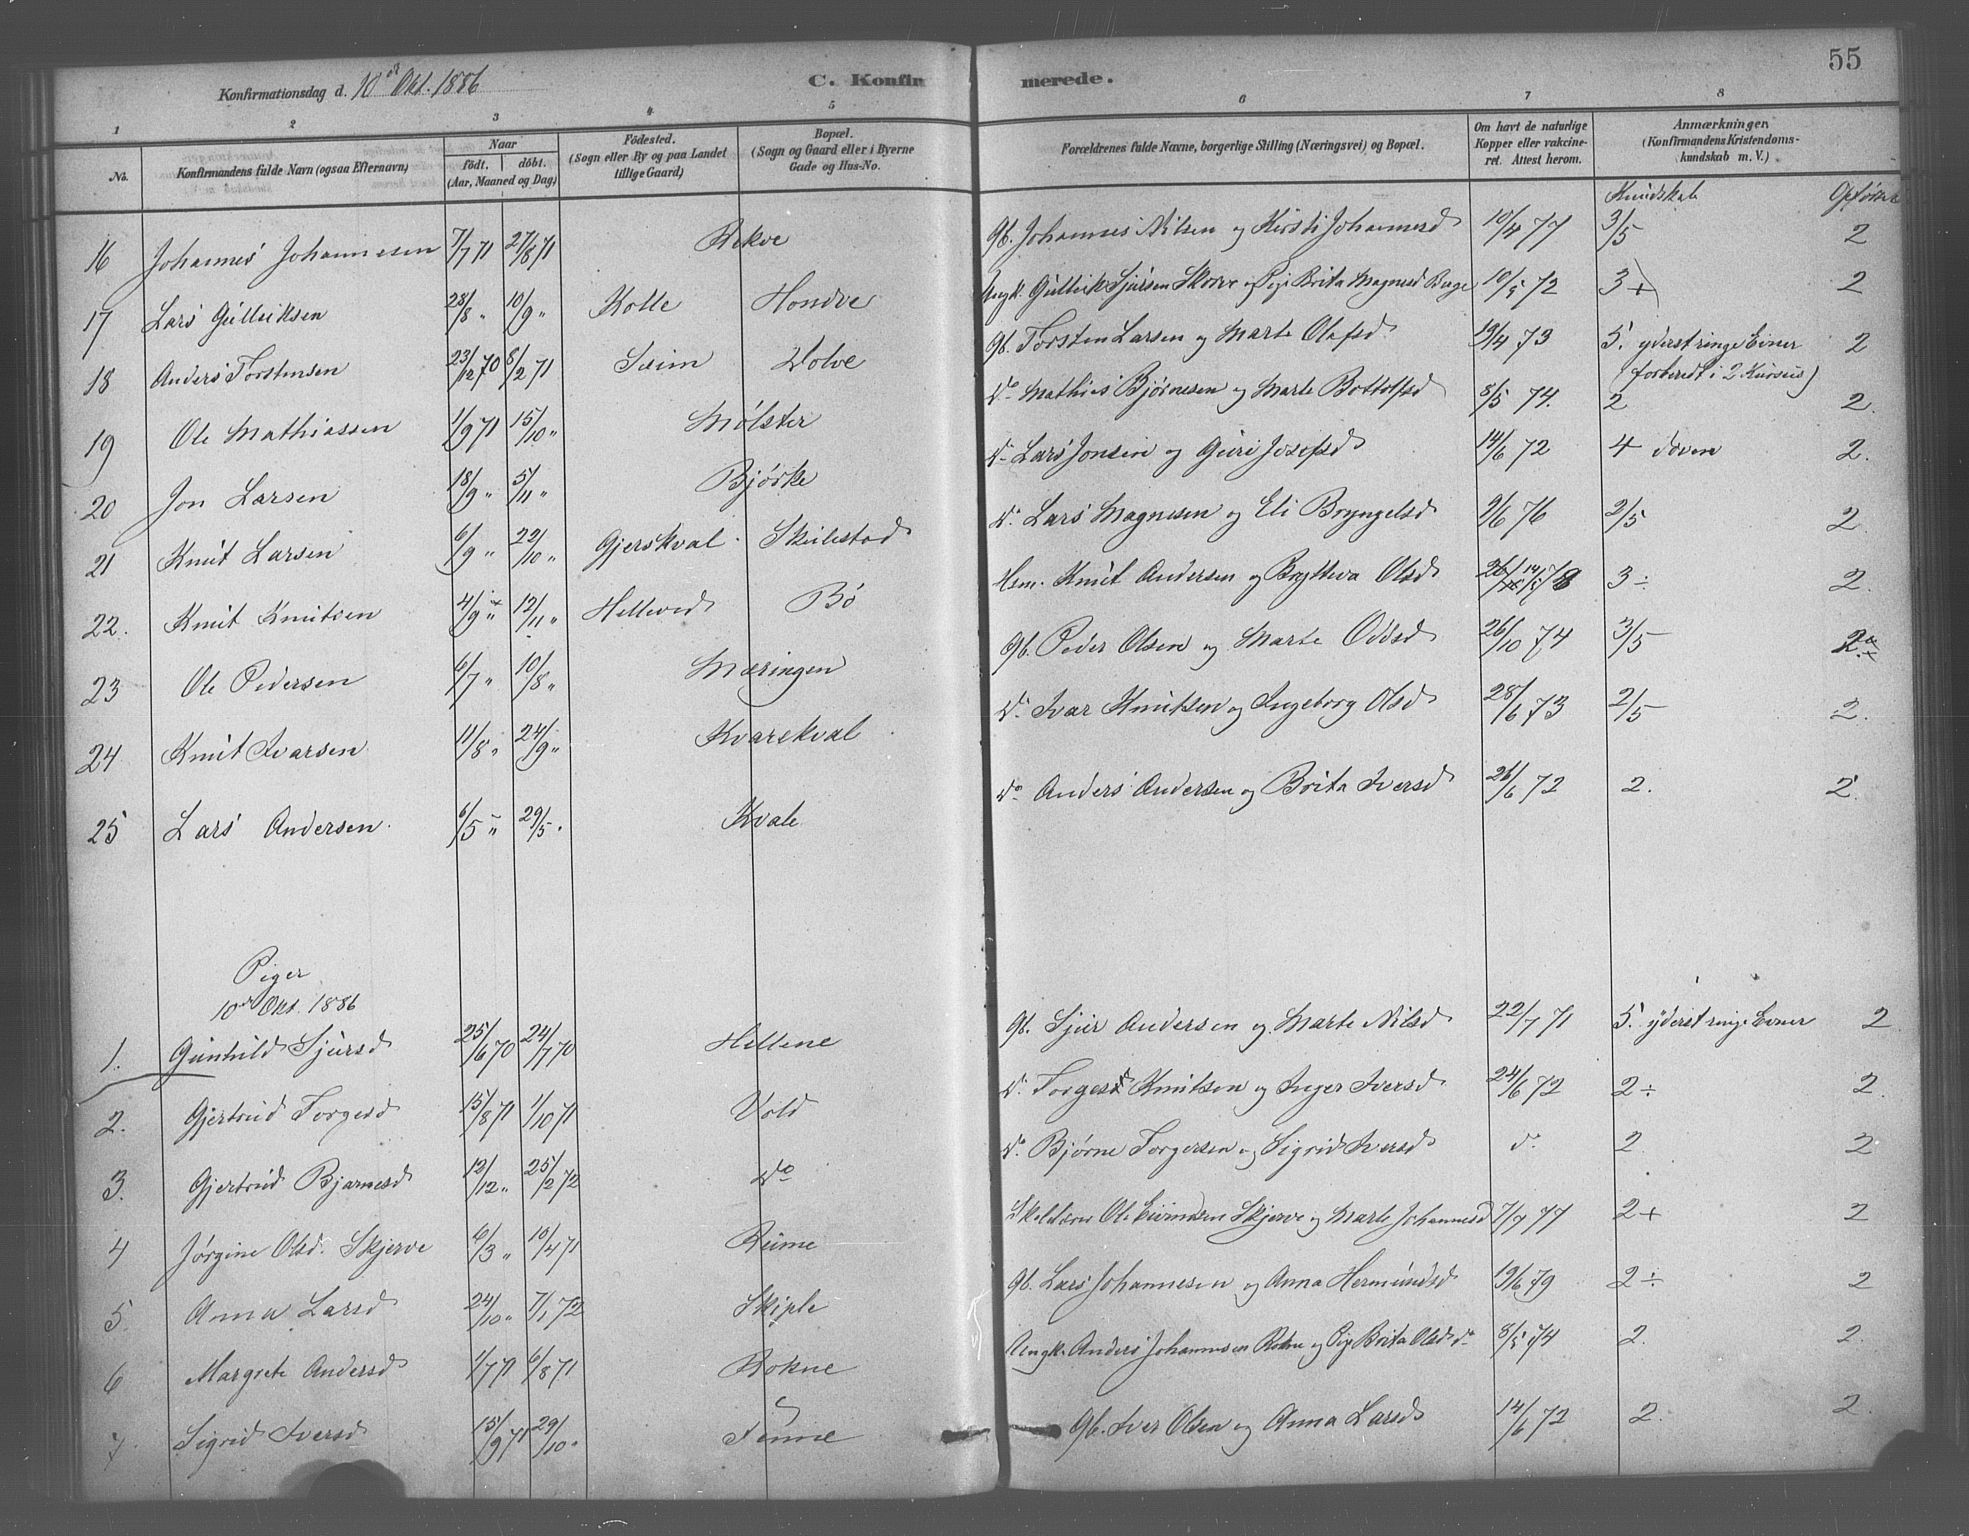 55
Konfirmationsdag d. 10de Okt. 1886 C. Konfirmerede.
1 2 3 4 5 6 7 8
No. Konfirmandens fulde Navn (ogsaa Efternavn) Naar født. døbt. (Aar, Maaned og Dag) Fødested. (Sogn eller By og paa Landet tillige Gaard) Bopæl. (Sogn og Gaard eller i Byerne Gade og Hus-No. Forældrenes fulde Navne, borgerlige Stilling (Næringsvei) og Bopæl. Om havt de naturlige Kopper eller vakcineret. Attest herom. Anmærkninger (Konfirmandens Kristendomskundskab m. V.)
Kundskab Opførsel
16 Johannes Johannesen 7/7 71 27/8 71 Rekve Gb. Johannes Nilsen og Kirsti Johannesd 10/4 77 3/5 2
17 Lars Gulleiksen 28/8 " 10/9 " Kolle Hondve Ungk. Gulleik Sjursen og Pige Brita Magnesd 10/5 72 3+ 2
18 Anders Torstensen 23/12 70 8/2 71 Seim Wolve Gb. Torsten Larsen og Marte Olafsd 19/4 73 5. yderst ringe Evner (forberedt i 2 Kursus) 2
19 Ole Mathiassen 1/9 71 15/10 " Mølster Do Mathias Bjørnesen og Marte Bottolfsd 8/5 74. 2 2.
20 Jon Larsen 18/9 " 5/11 " Bjørke Do Lars Jonsen og Guri Josefsd 14/6 72 4 doven 2.
21 Knut Larsen 6/9 " 22/10 " Gjerskval Skulestad Do Lars Magnesen og Eli Bryngelsd 9/6 76 2/5 2.
22. Knut Knutsen 4/9 " 12/11 " Helleved Bø Hsm. Knut Andersen og Bryteva Olsd 3÷ 2.
23 Ole Pedersen 6/7 " 10/8 " Mæringen Gb. Peder Olsen og Marte Oddsd 26/10 74 3/5 2
24 Knut Ivarsen 11/8 " 24/9 " Kvarekval Do Ivar Knutsen og Ingeborg Olsd 28/6 73 2/5 2.
25 Lars Andersen. 6/5 " 29/5 " Kvale Do Anders Andersen og Brita Iversd 26/6 72 2. 2.
Piger
10de Okt. 1886
1. Gunhild Sjursd 25/6 70 24/7 70 Hellene Gb. Sjur Andersen og Marte Nilsd 22/7 71 5. yderst ringe Evner 2
2. Gjertrud Torgesd 15/8 71 1/10 71 Vold Do Torges Knutsen og Inger Iversd 24/6 72 2÷ 2.
3. Gjertrud Bjørnesd 12/12 " 25/2 72 Do Do Bjørne Torgersen og Sigrid Iversd do 2. 2
4 Jørgine Olsd. Skjerve 6/3 " 10/4 71 Rume Ole Eivindsen Skjerve og Marte Johannesd 7/7 77 2+ 2
5. Anna Larsd 24/10 " 7/1 72 Skiple Gb. Lars Johannesen og Anna Hermundsd 19/6 79 2÷ 2
6 Margrete Andersd 1/7 71 6/8 71 Rokne Ungk. Anders Johannesen Rokne og Pige Brita Olsd do 8/5 74 2. 2.
7 Sigrid Iversd 15/9 71 29/10 " Finne Gb. Iver Olsen og Anna Larsd 14/6 72 2. 2.